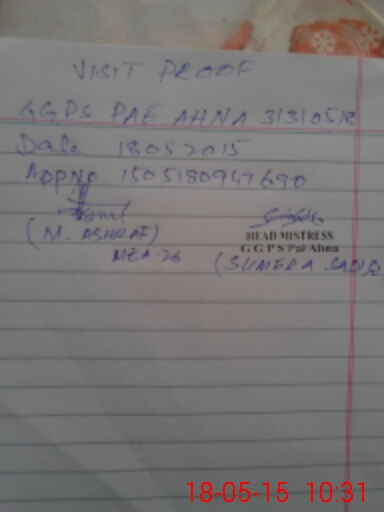 VISIT PROOF
GGPS PAE AHNA 31310518
Date 18052015
AppNo 1505180947690
(M. ASHRAF)
MEA-26
HEAD MISTRESS
G G P S Pai Ahna
(SUMERA SADIQ
18-05-15 10:31